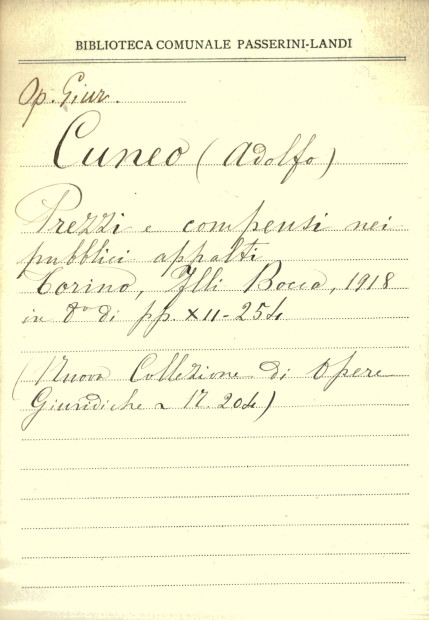 BIBLIOTECA COMUNALE PASSERINI-LANDI
Op. Giur.
Cuneo (Adolfo)
Prezzi e compensi nei
pubblici appalti
Torino, Flli Bocca, 1918
in 8º di pp. XII-254
(Nuova Collezione di Opere
Giuridiche N. 204)